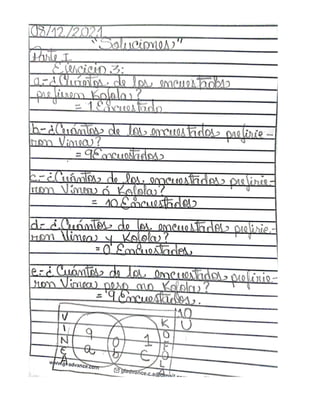 08/12/2021
"Soluciones"
Parte I
Ejercicio 3:
a-¿Cuántos de los encuestados
prefirieron Kolola?
= 1 Encuestado
b-¿Cuántos de los encuestados prefirie-
ron Vinea?
= 9 Encuestados
c-¿Cuántos de los encuestados prefirie-
ron Vinea ó Kolola?
= 10 Encuestados
d-¿Cuántos de los encuestados prefirie-
ron Vinea y Kolola?
= 0 Encuestados
e-¿Cuántos de los encuestados prefirie-
ron Vinea pero no Kolola?
= 9 Encuestados.
VINEA
9 0 1
a b c
10
U